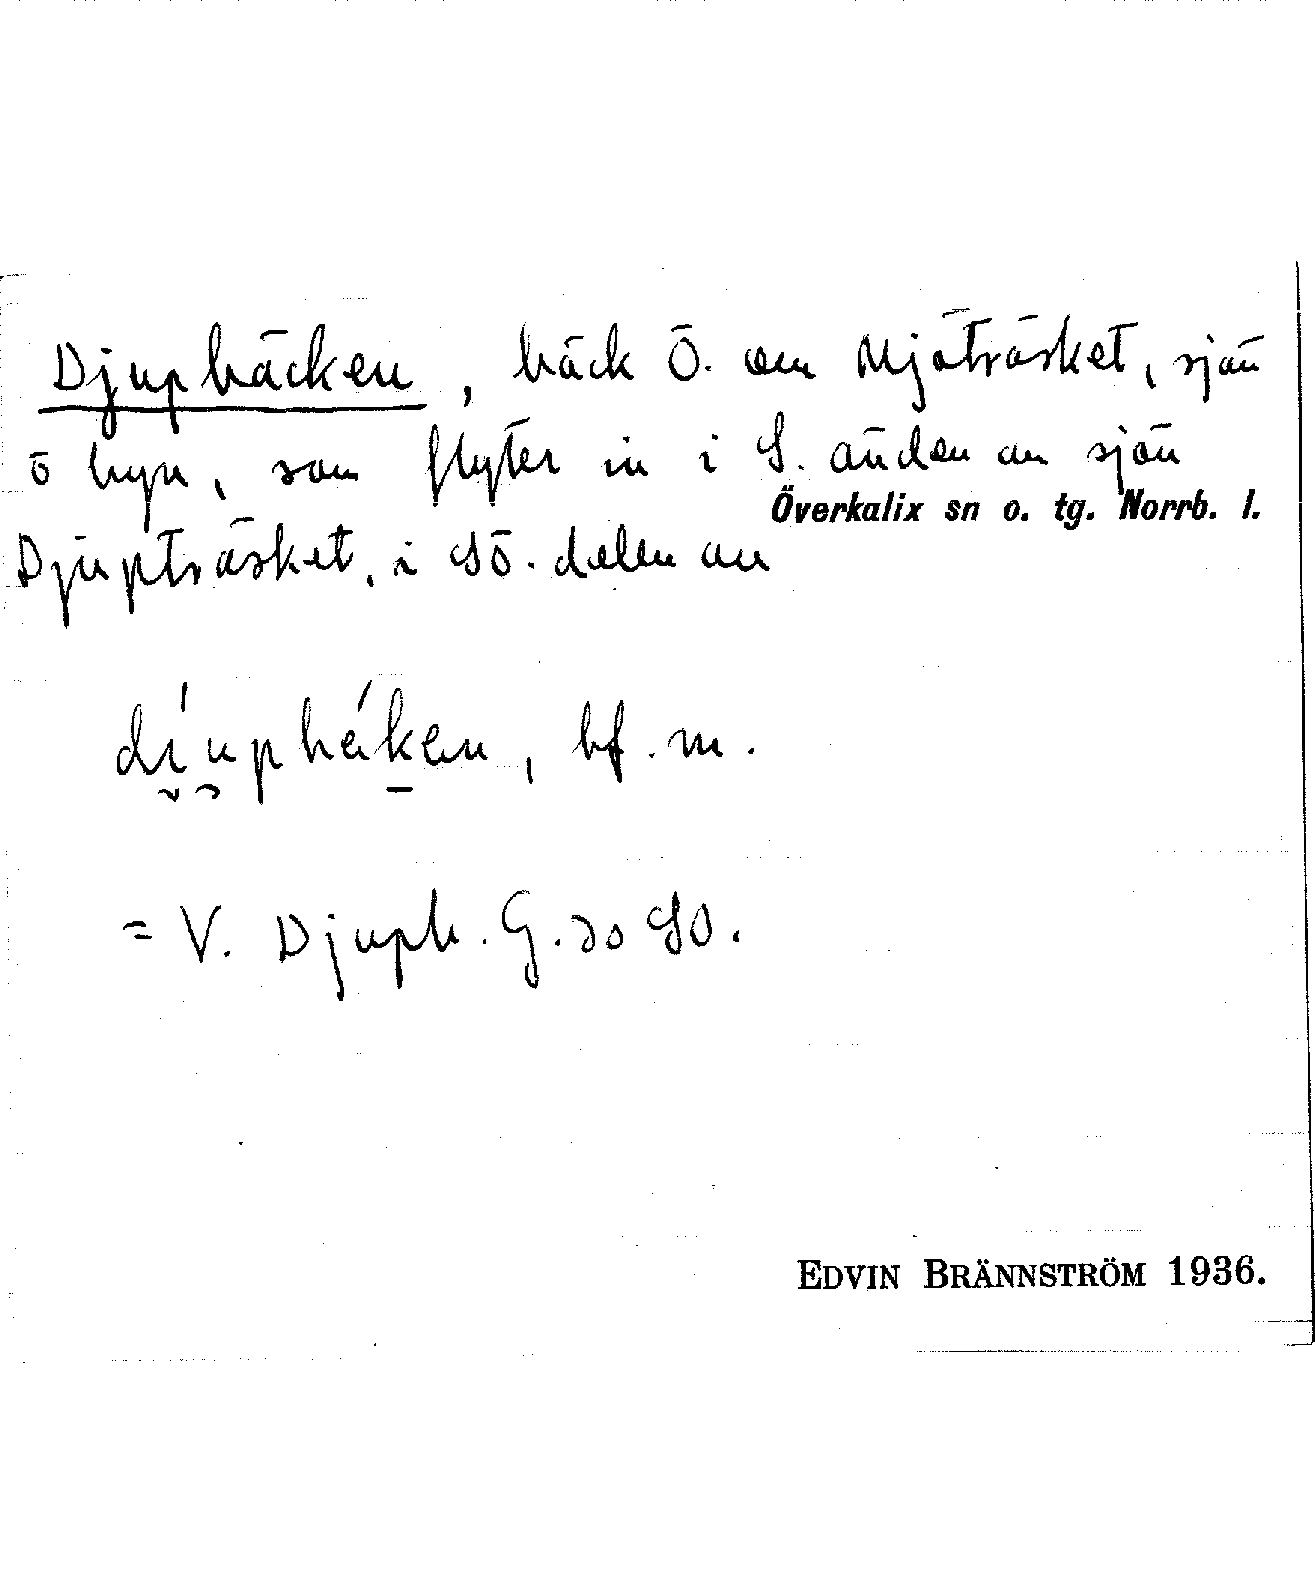 Djupbäcken, bäck Ö. om Mjöträsket, sjön
o byn, som flyter in i S. änden av sjön
Överkalix sn o. tg. Norrb. l.
Djupträsket, i SÖ. delen av
bf. m.
= V. Djupb. G. 30 SO.
EDVIN BRÄNNSTRÖM 1936.